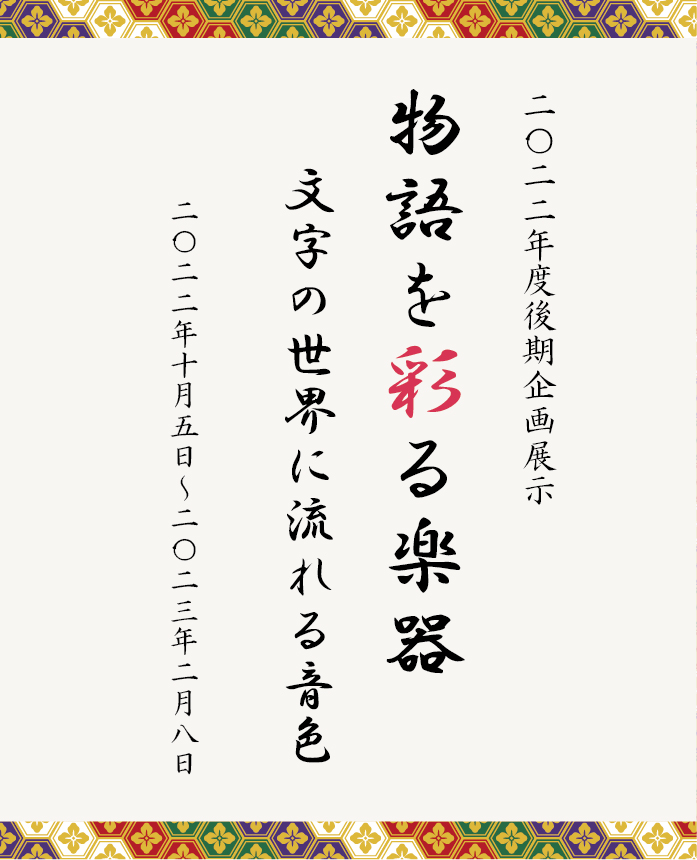 二〇二二年度後期企画展示
物語を彩る楽器
文字の世界に流れる音色
二〇二二年十月五日～二〇二三年二月八日